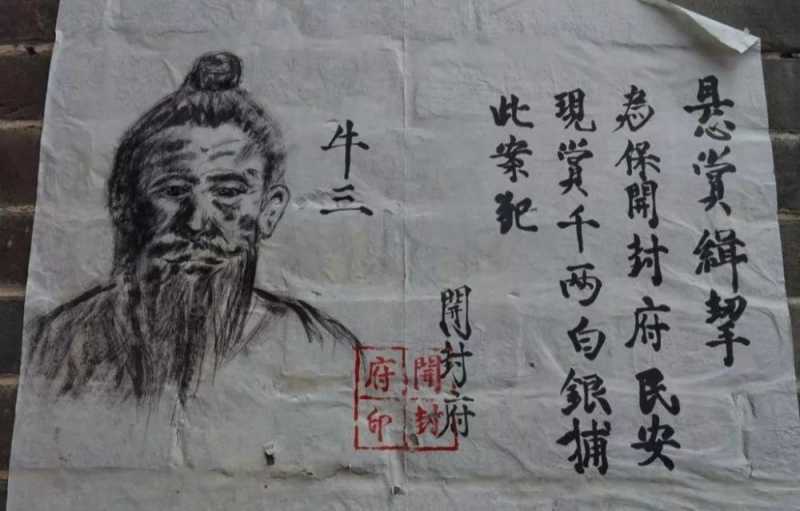 悬赏缉拏
为保開封府民安
現賞千两白銀捕
此案犯
牛三
開封府
開封
府印